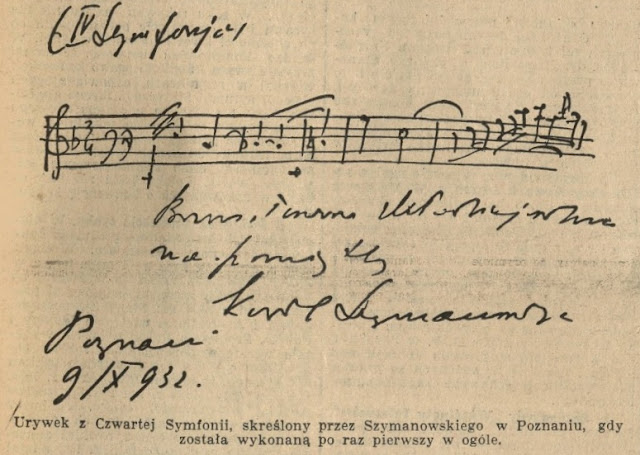 (IV Symfonja)
na pamiątkę
Karol Szymanowski
Poznań
9/X 932.
Urywek z Czwartej Symfonii, skreślony przez Szymanowskiego w Poznaniu, gdy
została wykonaną po raz pierwszy w ogóle.